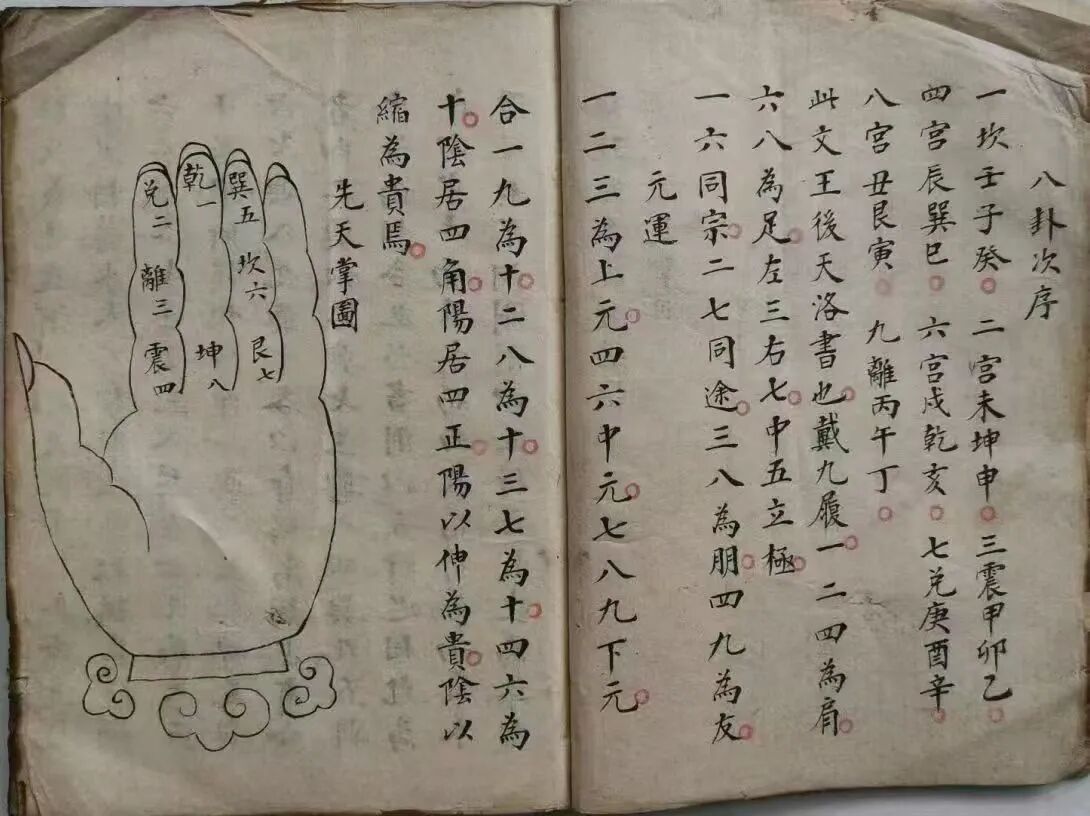 八卦次序
一坎壬子癸。二宫未坤申。三震甲卯乙。
四宫辰巽巳。六宫戍乾亥。七兌庚酉辛。
八宫丑艮寅。九離丙午丁。
此文王後天洛書也。戴九履一。二四為肩。
六八為足。左三右七。中五立極。
一六同宗。二七同途。三八為朋。四九為友。
元運
一二三為上元。四六中元。七八九下元。
合一九為十。二八為十。三七為十。四六為
十。陰居四角。陽居四正。陽以伸為貴。陰以
縮為貴焉。
先天掌圖
巽五
坎六
艮七
乾一
坤八
兌二
離三
震四